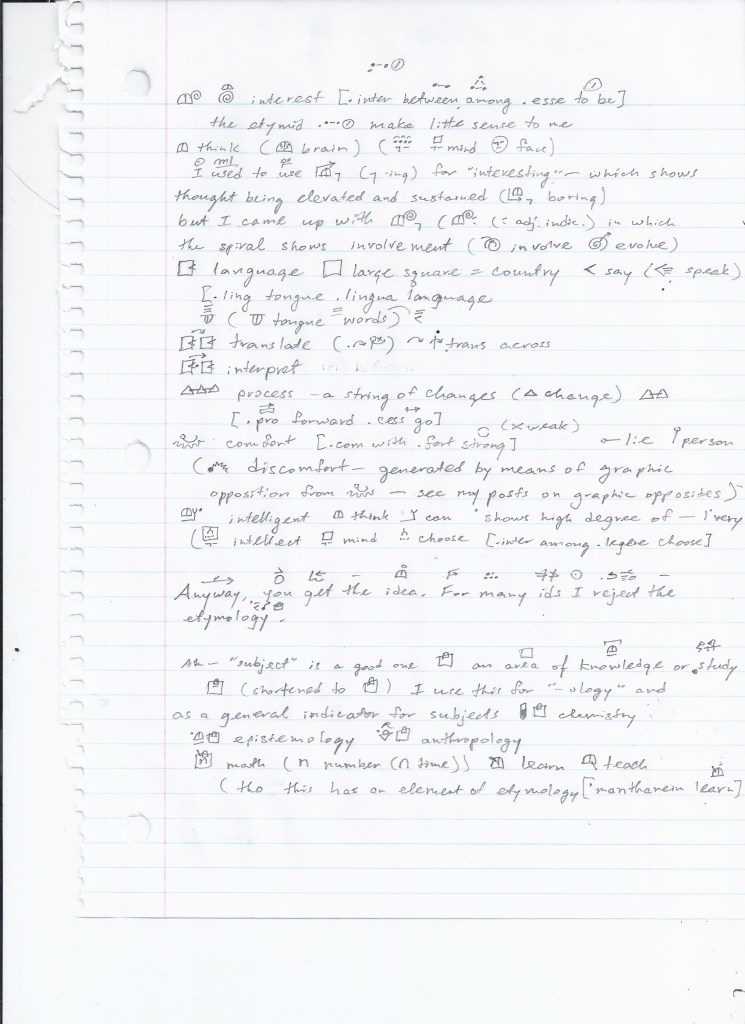 interest [.inter between, among .esse to be]
the etymid make little sense to me
think ( brain) ( mind face)
I used to use (-ing) for "interesting" – which shows
thought being elevated and sustained ( boring)
but I came up with ( (: = adj. indic.) in which
the spiral shows involvement ( involve evolve)
language large square = country < say ( speak)
[.ling tongue .lingua language
( tongue words)
translate trans across
interpret
process – a string of changes (△ change) △△
[.pro forward .cess go] (× weak)
comfort [.com with .fort strong] lie person
( discomfort – generated by means of graphic
opposition from – see my posts on graphic opposites)
intelligent think can shows high degree of – very
( intellect mind choose [.inter among .legere choose]
Anyway, you get the idea. For many ids I reject the
etymology.
– "subject" is a good one an area of knowledge or study
(shortened to ) I use this for "-ology" and
as a general indicator for subjects chemistry
epistemology anthropology
math (n number (∩ time)) learn teach
(tho this has an element of etymology [manthanein learn]